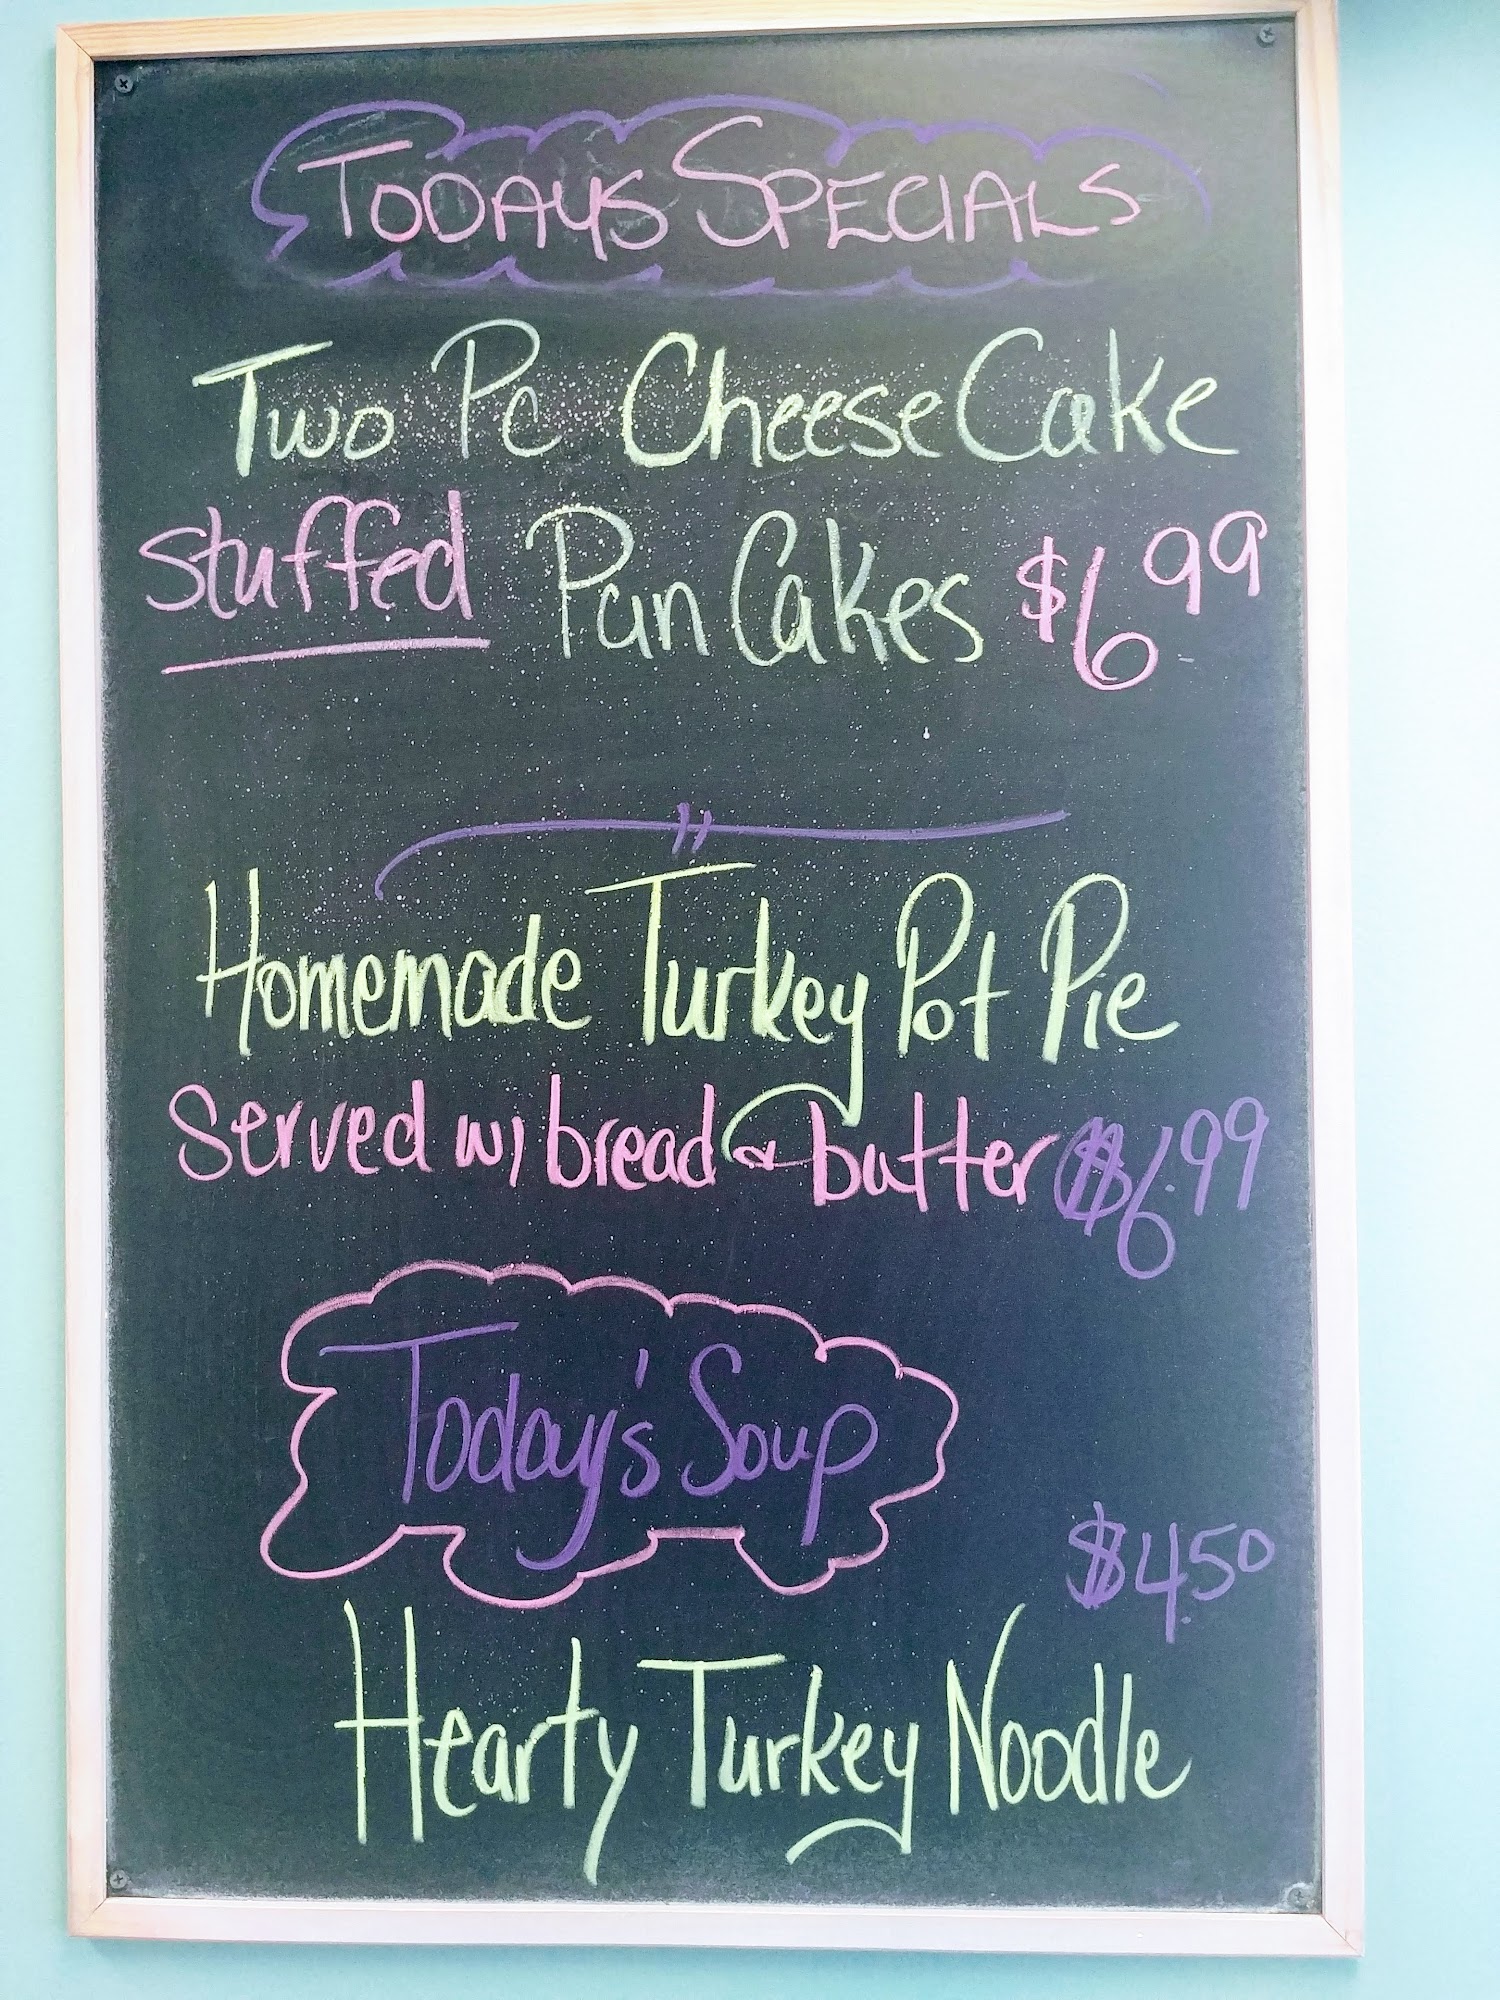 TODAYS SPECIALS
Two Pc CheeseCake
Stuffed PanCakes $6 99
Homemade Turkey Pot Pie
Served w/ bread & butter $6.99
Today's Soup
$4.50
Hearty Turkey Noodle